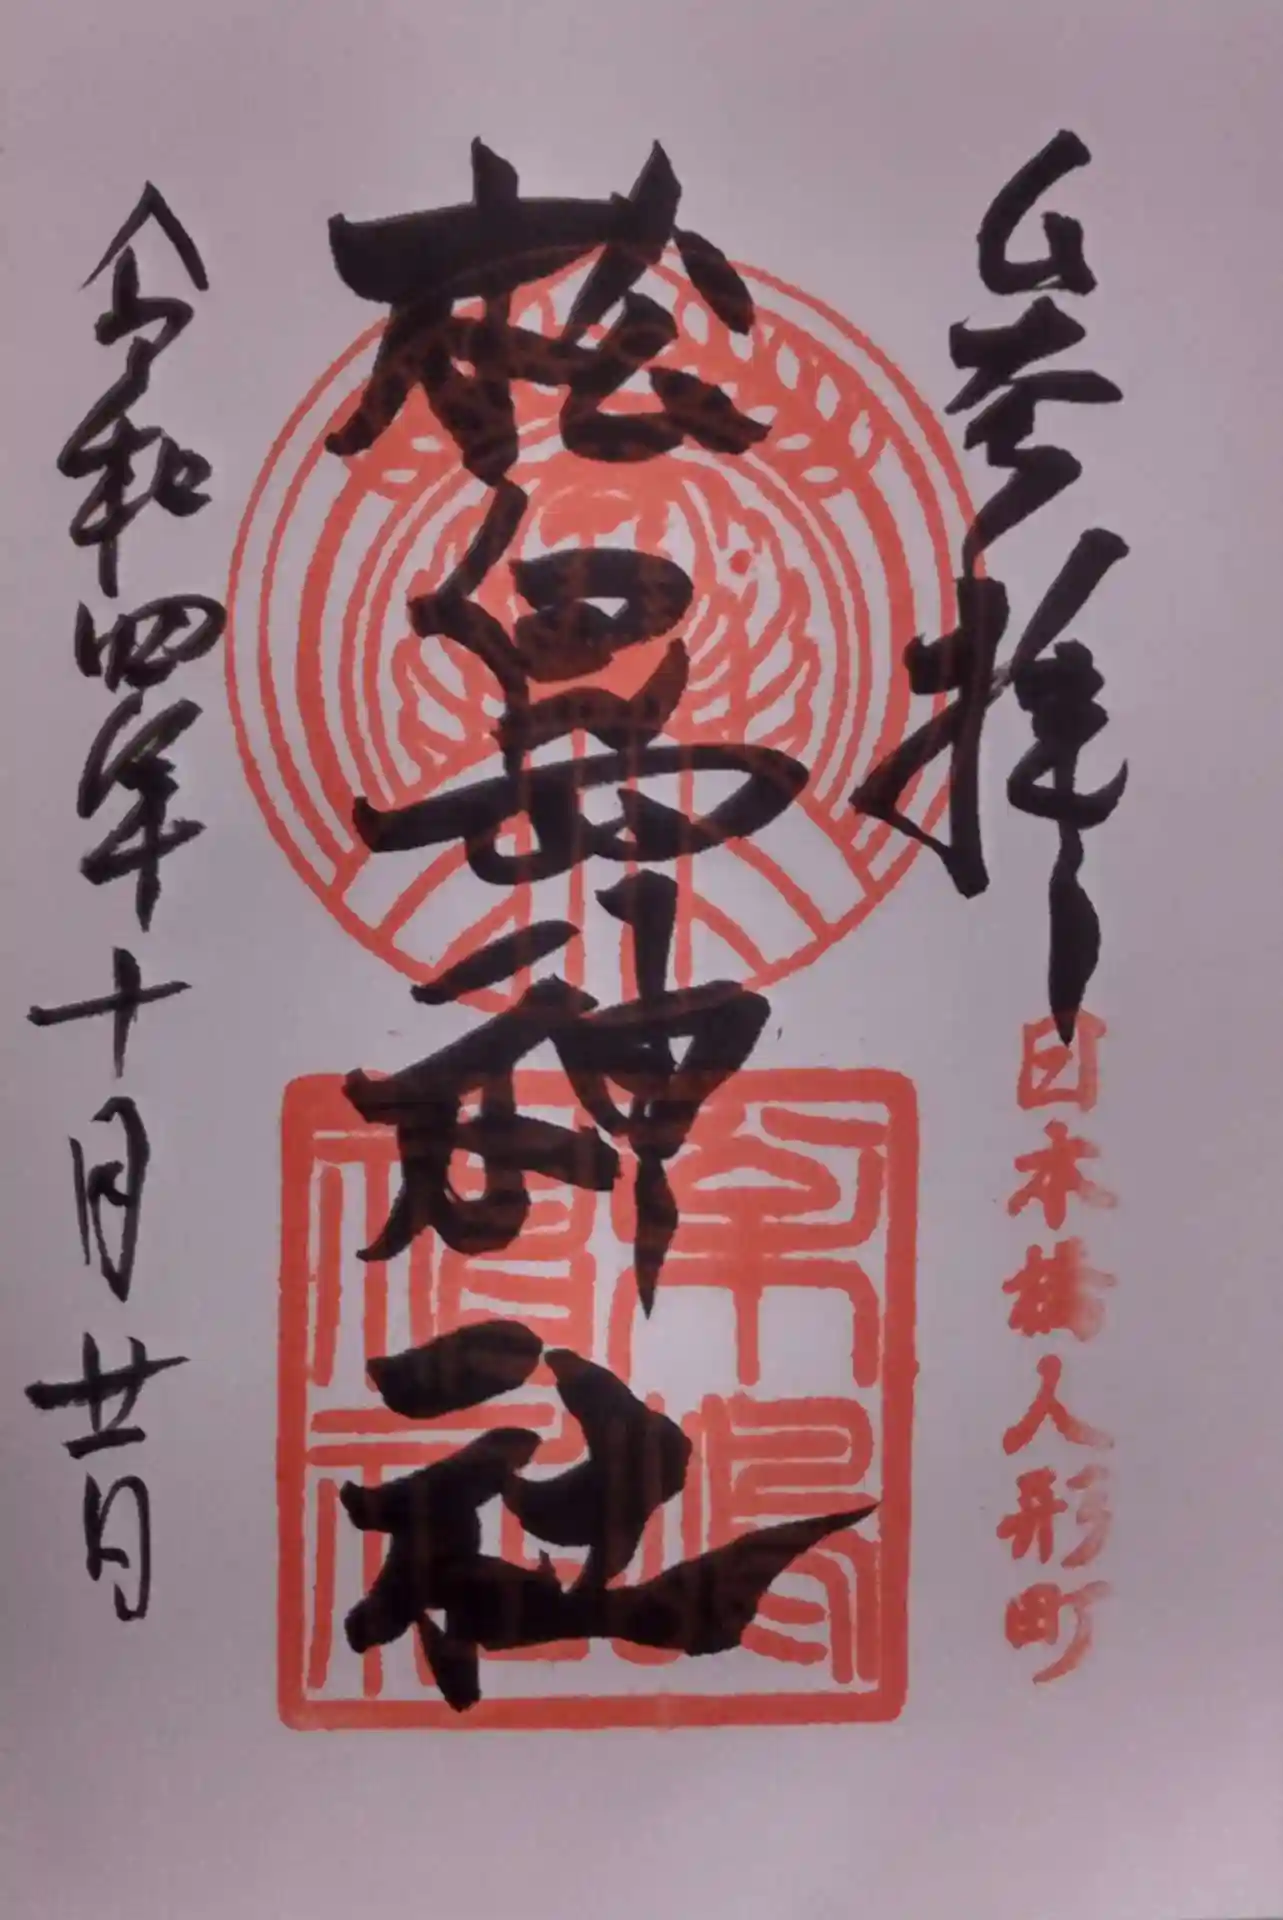 参拝
日本橋人形町
松島神社
令和四年十月廿日